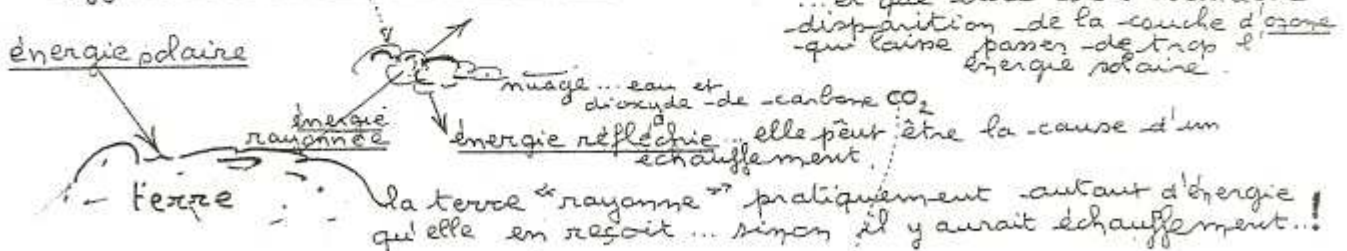 disparition de la couche d'ozone
qui laisse passer de trop l'
énergie solaire.
énergie solaire
nuage... eau et
dioxyde de carbone CO2
énergie
rayonnée
énergie réfléchie... elle peut être la cause d'un
échauffement.
terre
la terre "rayonne" pratiquement autant d'énergie
qu'elle en reçoit... sinon il y aurait échauffement..!